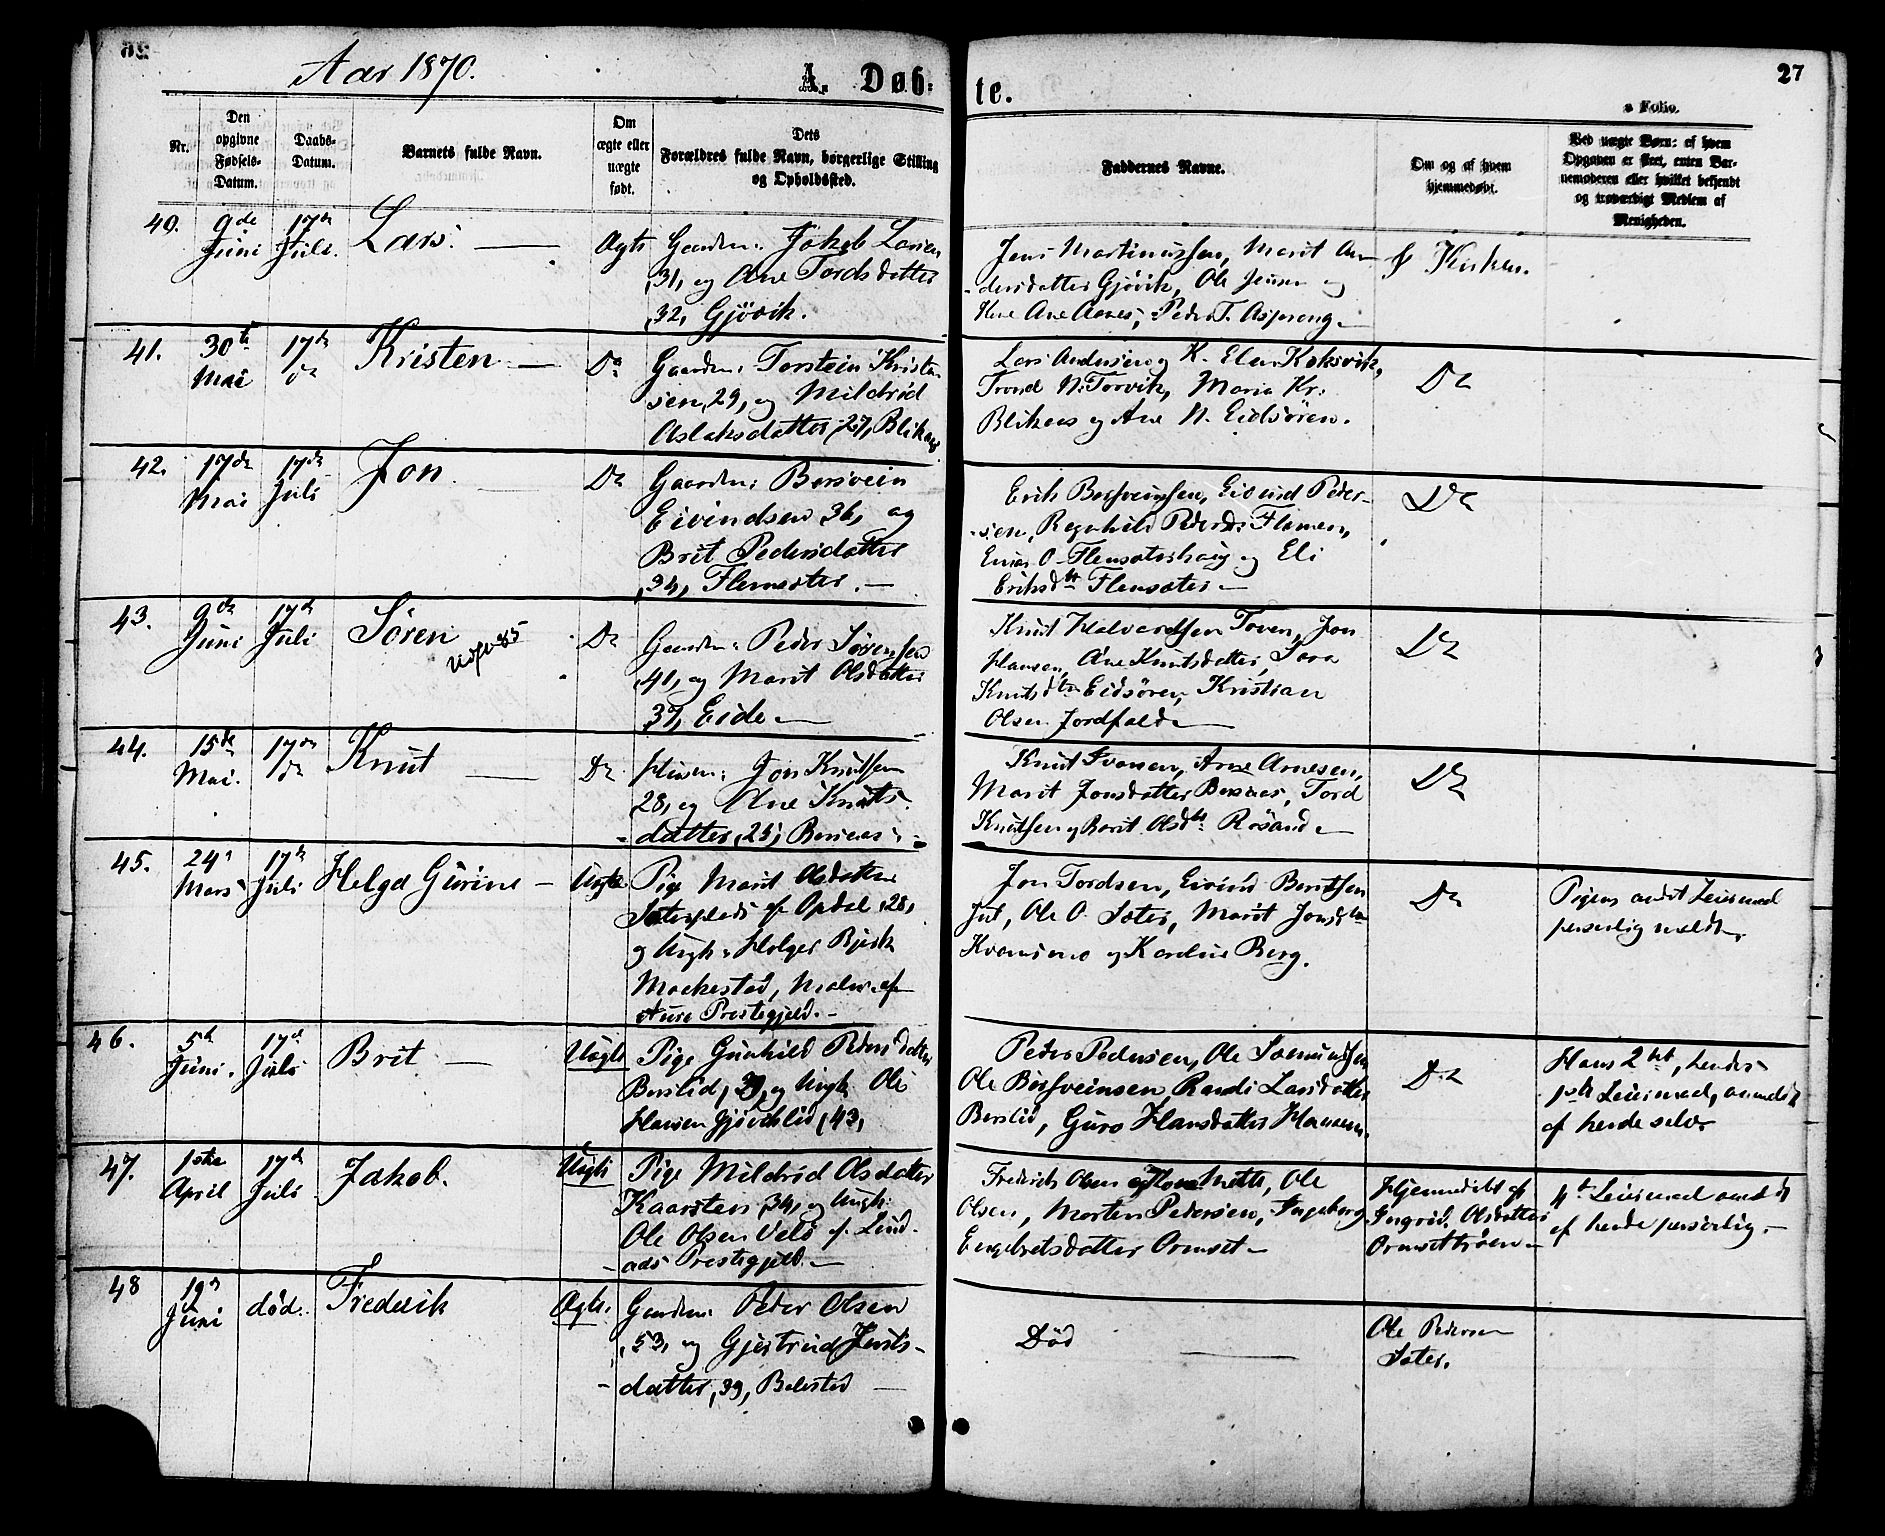 Aar 1870.
A. Døb-
te.
27
a Folio.
Nr.
Den
opgivne
Fødsels-
Datum.
Daabs-
Datum.
Barnets fulde Navn.
Om
ægte eller
uægte
født.
Dets
Forældres fulde Navn, borgerlige Stilling
og Opholdssted.
Faddernes Navne.
Om og af hvem
hjemmedøbt.
Ved uægte Børn: af hvem
Opgaven er skeet, enten Bar-
nemoderen eller hvilket bekjendt
og troværdigt Medlem af
Menigheden.
40.
9de
Juni
17de
Juli.
Lars.
Ægte
Gaardm: Jakob Larsen
31, og Ane Tordsdatter
32, Gjövik.
Jens Martinussen, Marit An-
dersdatter Gjövik, Ole Jensen og
Kone Ane Aanes, Peder T. Asprong
I Kirken.
41.
30te
Mai
17de
do
Kristen
Do
Gaardm: Torstein Kristen-
sen, 29, og Mildrid
Aslaksdatter, 27, Blikaas
Lars Andersen og K. Elen Koksvik,
Trond N. Torvik, Maria Kr.
Blikaas og Ane N. Eidsören.
Do
42.
17de
Mai
17de
Juli
Jon.
Do
Gaardm: Bersvein
Eivindsen 36, og
Brit Pedersdatter
34, Flemsæter.
Erik Bersveinsen, Eivind Peder-
sen, Ragnhild Pedersd:
O. Flemsæterhaug og Eli
Eriksdtr Flemsæter
Do
43.
9de
Juni
17de
Juli
Sören
Do
Gaardm: Peder Sörensen
41, og Marit Olsdatter
37, Eide
Knut Halvardsen Toven, Jon
Hansen, Ane Knutsdatter,
Knutsdtr Eidsören, Kristian
Olsen Jordfald
Do
44.
15de
Mai.
17de
do
Knut
Do
Husm: Jon Knutsen
28, og Ane Knuts-
datter, 25, Bersaas
Knut Ivarsen, Arne Arnesen,
Marit Jonsdatter Bersaas, Tord
Knutsen og Berit Olsdtr Rösand
Do
45.
24de
Mars
17de
Juli
Helga Gurine
Uægte
Pige Marit Olsdatter
Sæterplads af Opdal, 28,
og Ungk: Holger Bjerk
Mackestad, Maler af
Aure Prestegjeld.
Jon Tordsen, Eivind Berntsen
Jul, Ole O. Sæter, Marit Jonsdtr
og Karoline Berg.
Do
Pigens andet Leiermaal
personlig meldt.
46.
5te
Juni.
17de
Juli
Brit
Uægte
Pige Gunhild Pedersdatter
Berslid, og Ungk. Ole
Hansen Gjöviklid, 43,
Peder Pedersen, Ole Sæmundsen
Ole Bersveinsen, Randi Larsdatter
Berslid, Guro Hansdatter
Do
Hans 2det, hendes
1ste Leiermaal, anmeldt
af hende selv.
47.
1ste
April
17de
Juli
Jakob.
Uægte
Pige Mildrid Olsdatter
Kaarsten, 34, og Ungk:
Ole Olsen Velo af Lind-
aas Prestegjeld.
Frederik Olsen og Kone Mette, Ole
Olsen, Morten Pedersen, Ingeborg
Engebretsdatter Ormset
Hjemmedöbt af
Ingrid Olsdatter
Ormsettröen
4de Leiermaal anmeldt
af hende personlig.
48
19de
Juni
död.
Frederik
Ægte.
Gaardm: Peder Olsen
53, og Gjertrud Knuts-
datter, 39, Bolestad
Död
Ole Pedersen
Sæter.